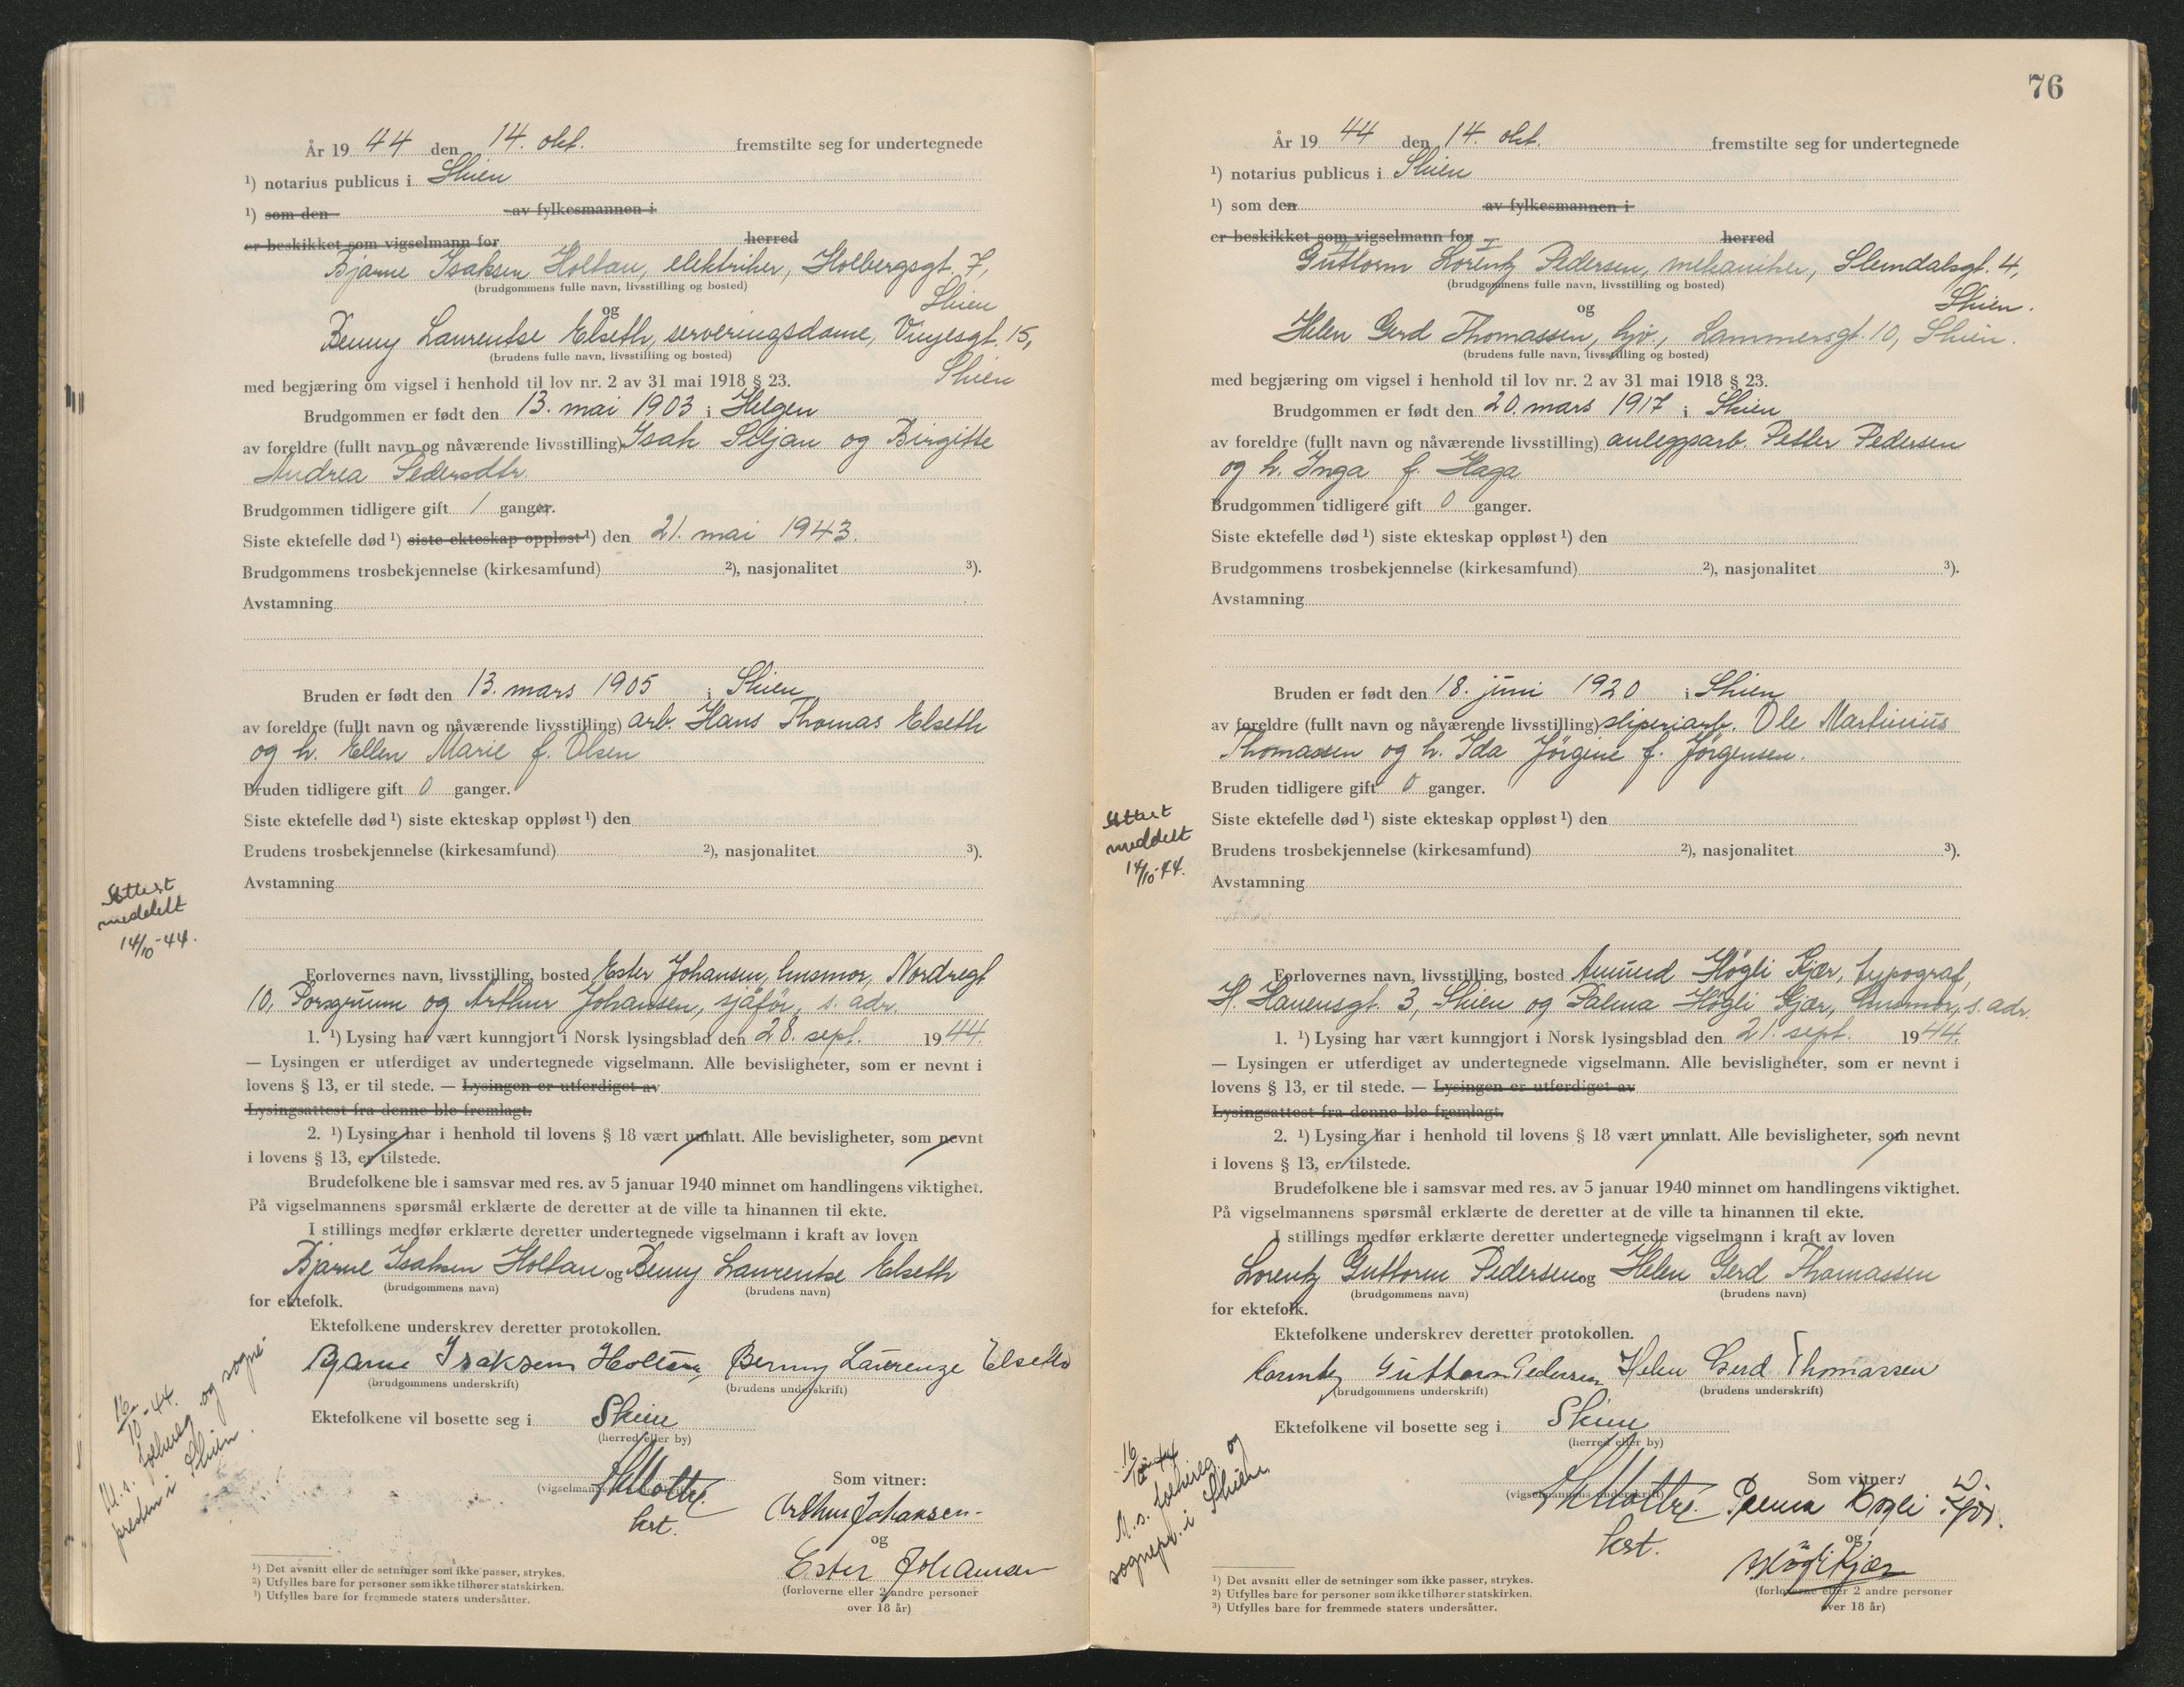 År 19 44 den 14. okt. fremstilte seg for undertegnede
¹) notarius publicus i Skien
¹) som den av fylkesmannen i
er beskikket som vigselmann for herred
Bjarne Isaksen Holtan, elektriker, Holbergsgt. 7,
(brudgommens fulle navn, livsstilling og bosted)
Skien
og
Benny Laurentse Elseth, serveringsdame, Vinjesgt. 15,
(brudens fulle navn, livsstilling og bosted)
Skien
med begjæring om vigsel i henhold til lov nr. 2 av 31 mai 1918 § 23.
Brudgommen er født den 13. mai 1903 i Helgen
av foreldre (fullt navn og nåværende livsstilling) Isak Siljan og Birgitte
Andrea Pedersdtr.
Brudgommen tidligere gift 1 ganger.
Siste ektefelle død ¹) siste ekteskap oppløst ¹) den 21. mai 1943.
Brudgommens trosbekjennelse (kirkesamfund) ²), nasjonalitet ³).
Avstamning
Bruden er født den 13. mars 1905 i Skien
av foreldre (fullt navn og nåværende livsstilling) arb. Hans Thomas Elseth
og h. Ellen Marie f. Olsen
Bruden tidligere gift 0 ganger.
Siste ektefelle død ¹) siste ekteskap oppløst ¹) den
Brudens trosbekjennelse (kirkesamfund) ²), nasjonalitet ³).
Avstamning
Attest
meddelt
14/10-44.
Forlovernes navn, livsstilling, bosted Ester Johansen, husmor, Nordregt
10, Porsgrunn og Arthur Johansen, sjåfør, s. adr.
1. ¹) Lysing har vært kunngjort i Norsk lysingsblad den 28. sept. 1944.
— Lysingen er utferdiget av undertegnede vigselmann. Alle bevisligheter, som er nevnt i
lovens § 13, er til stede. — Lysingen er utferdiget av
Lysingsattest fra denne ble fremlagt.
2. ¹) Lysing har i henhold til lovens § 18 vært unnlatt. Alle bevisligheter, som nevnt
i lovens § 13, er tilstede.
Brudefolkene ble i samsvar med res. av 5 januar 1940 minnet om handlingens viktighet.
På vigselmannens spørsmål erklærte de deretter at de ville ta hinannen til ekte.
I stillings medfør erklærte deretter undertegnede vigselmann i kraft av loven
Bjarne Isaksen Holtan og Benny Laurentse Elseth
(brudgommens navn) (brudens navn)
for ektefolk.
Ektefolkene underskrev deretter protokollen.
Bjarne Isaksen Holtan, Benny Laurenze Elseth
(brudgommens underskrift) (brudens underskrift)
Ektefolkene vil bosette seg i Skien
(herred eller by)
16/10-44.
M. s. folkereg. og sogne
presten i Skien.
(vigselmannens underskrift)
Som vitner:
Arthur Johansen-
og
Ester Johansen
(forloverne eller 2 andre personer
over 18 år)
¹) Det avsnitt eller de setninger som ikke passer, strykes.
²) Utfylles bare for personer som ikke tilhører statskirken.
³) Utfylles bare for fremmede staters undersåtter.
76
År 19 44 den 14. okt. fremstilte seg for undertegnede
¹) notarius publicus i Skien
¹) som den av fylkesmannen i
er beskikket som vigselmann for herred
Guttorm Lorentz Pedersen, mekaniker, Slemdalsgt. 4,
(brudgommens fulle navn, livsstilling og bosted)
Skien.
og
Helen Gerd Thomassen, hjv., Lammersgt. 10, Skien.
(brudens fulle navn, livsstilling og bosted)
med begjæring om vigsel i henhold til lov nr. 2 av 31 mai 1918 § 23.
Brudgommen er født den 20. mars 1917 i Skien
av foreldre (fullt navn og nåværende livsstilling) anleggsarb. Petter Pedersen
og h. Inga f. Haga
Brudgommen tidligere gift 0 ganger.
Siste ektefelle død ¹) siste ekteskap oppløst ¹) den
Brudgommens trosbekjennelse (kirkesamfund) ²), nasjonalitet ³).
Avstamning
Bruden er født den 18. juni 1920 i Skien
av foreldre (fullt navn og nåværende livsstilling) sliperiarb. Ole Martinius
Thomassen og h. Ida Jørgine f. Jørgensen.
Bruden tidligere gift 0 ganger.
Attest
meddelt
14/10-44.
Siste ektefelle død ¹) siste ekteskap oppløst ¹) den
Brudens trosbekjennelse (kirkesamfund) ²), nasjonalitet ³).
Avstamning
Forlovernes navn, livsstilling, bosted Amund Høgli Kjær, typograf,
H. Hauensgt. 3, Skien og Palma Høgli Kjær, husmor, s. adr.
1. ¹) Lysing har vært kunngjort i Norsk lysingsblad den 21. sept. 1944.
— Lysingen er utferdiget av undertegnede vigselmann. Alle bevisligheter, som er nevnt i
lovens § 13, er til stede. — Lysingen er utferdiget av
Lysingsattest fra denne ble fremlagt.
2. ¹) Lysing har i henhold til lovens § 18 vært unnlatt. Alle bevisligheter, som nevnt
i lovens § 13, er tilstede.
Brudefolkene ble i samsvar med res. av 5 januar 1940 minnet om handlingens viktighet.
På vigselmannens spørsmål erklærte de deretter at de ville ta hinannen til ekte.
I stillings medfør erklærte deretter undertegnede vigselmann i kraft av loven
Lorentz Guttorm Pedersen og Helen Gerd Thomassen
(brudgommens navn) (brudens navn)
for ektefolk.
Ektefolkene underskrev deretter protokollen.
Lorentz Guttorm Pedersen Helen Gerd Thomassen
(brudgommens underskrift) (brudens underskrift)
Ektefolkene vil bosette seg i Skien
(herred eller by)
16/10-44
M. s. folkereg. og
sognepr. i Skien
(vigselmannens underskrift)
Som vitner:
Palma Høgli Kjær.
og
A Høgli Kjær
(forloverne eller 2 andre personer
over 18 år)
¹) Det avsnitt eller de setninger som ikke passer, strykes.
²) Utfylles bare for personer som ikke tilhører statskirken.
³) Utfylles bare for fremmede staters undersåtter.